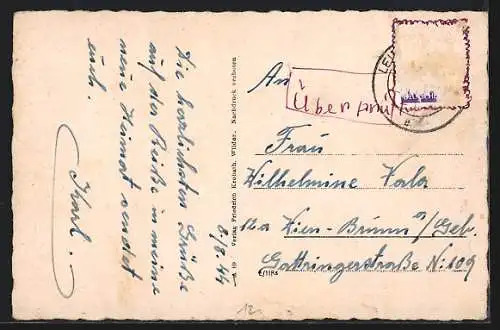 8/8. 44
Die herzlichsten Grüße
auf der Reise in meine
meine Heimat sendet
euch.
Karl.
Verlag Friedrich Krobath, Wildac. Nachdruck verboten
An
Über
Frau
Wilhelmine Vala
12a Wien-Brunn a/Geb.
Gattringerstraße N: 109
12.